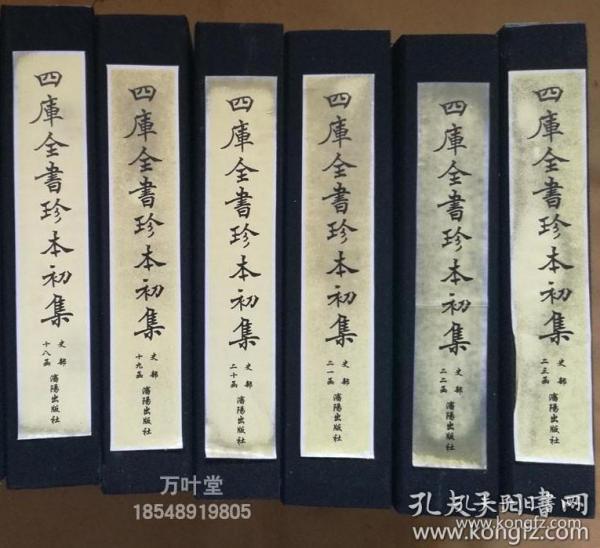 四庫全書珍本初集
史部
十八函
瀋陽出版社
四庫全書珍本初集
史部
十九函
瀋陽出版社
四庫全書珍本初集
史部
二十函
瀋陽出版社
四庫全書珍本初集
史部
二一函
瀋陽出版社
四庫全書珍本初集
史部
二二函
瀋陽出版社
四庫全書珍本初集
史部
二三函
瀋陽出版社
万叶堂
18548919805
孔夫子旧书网
www.kongfz.com